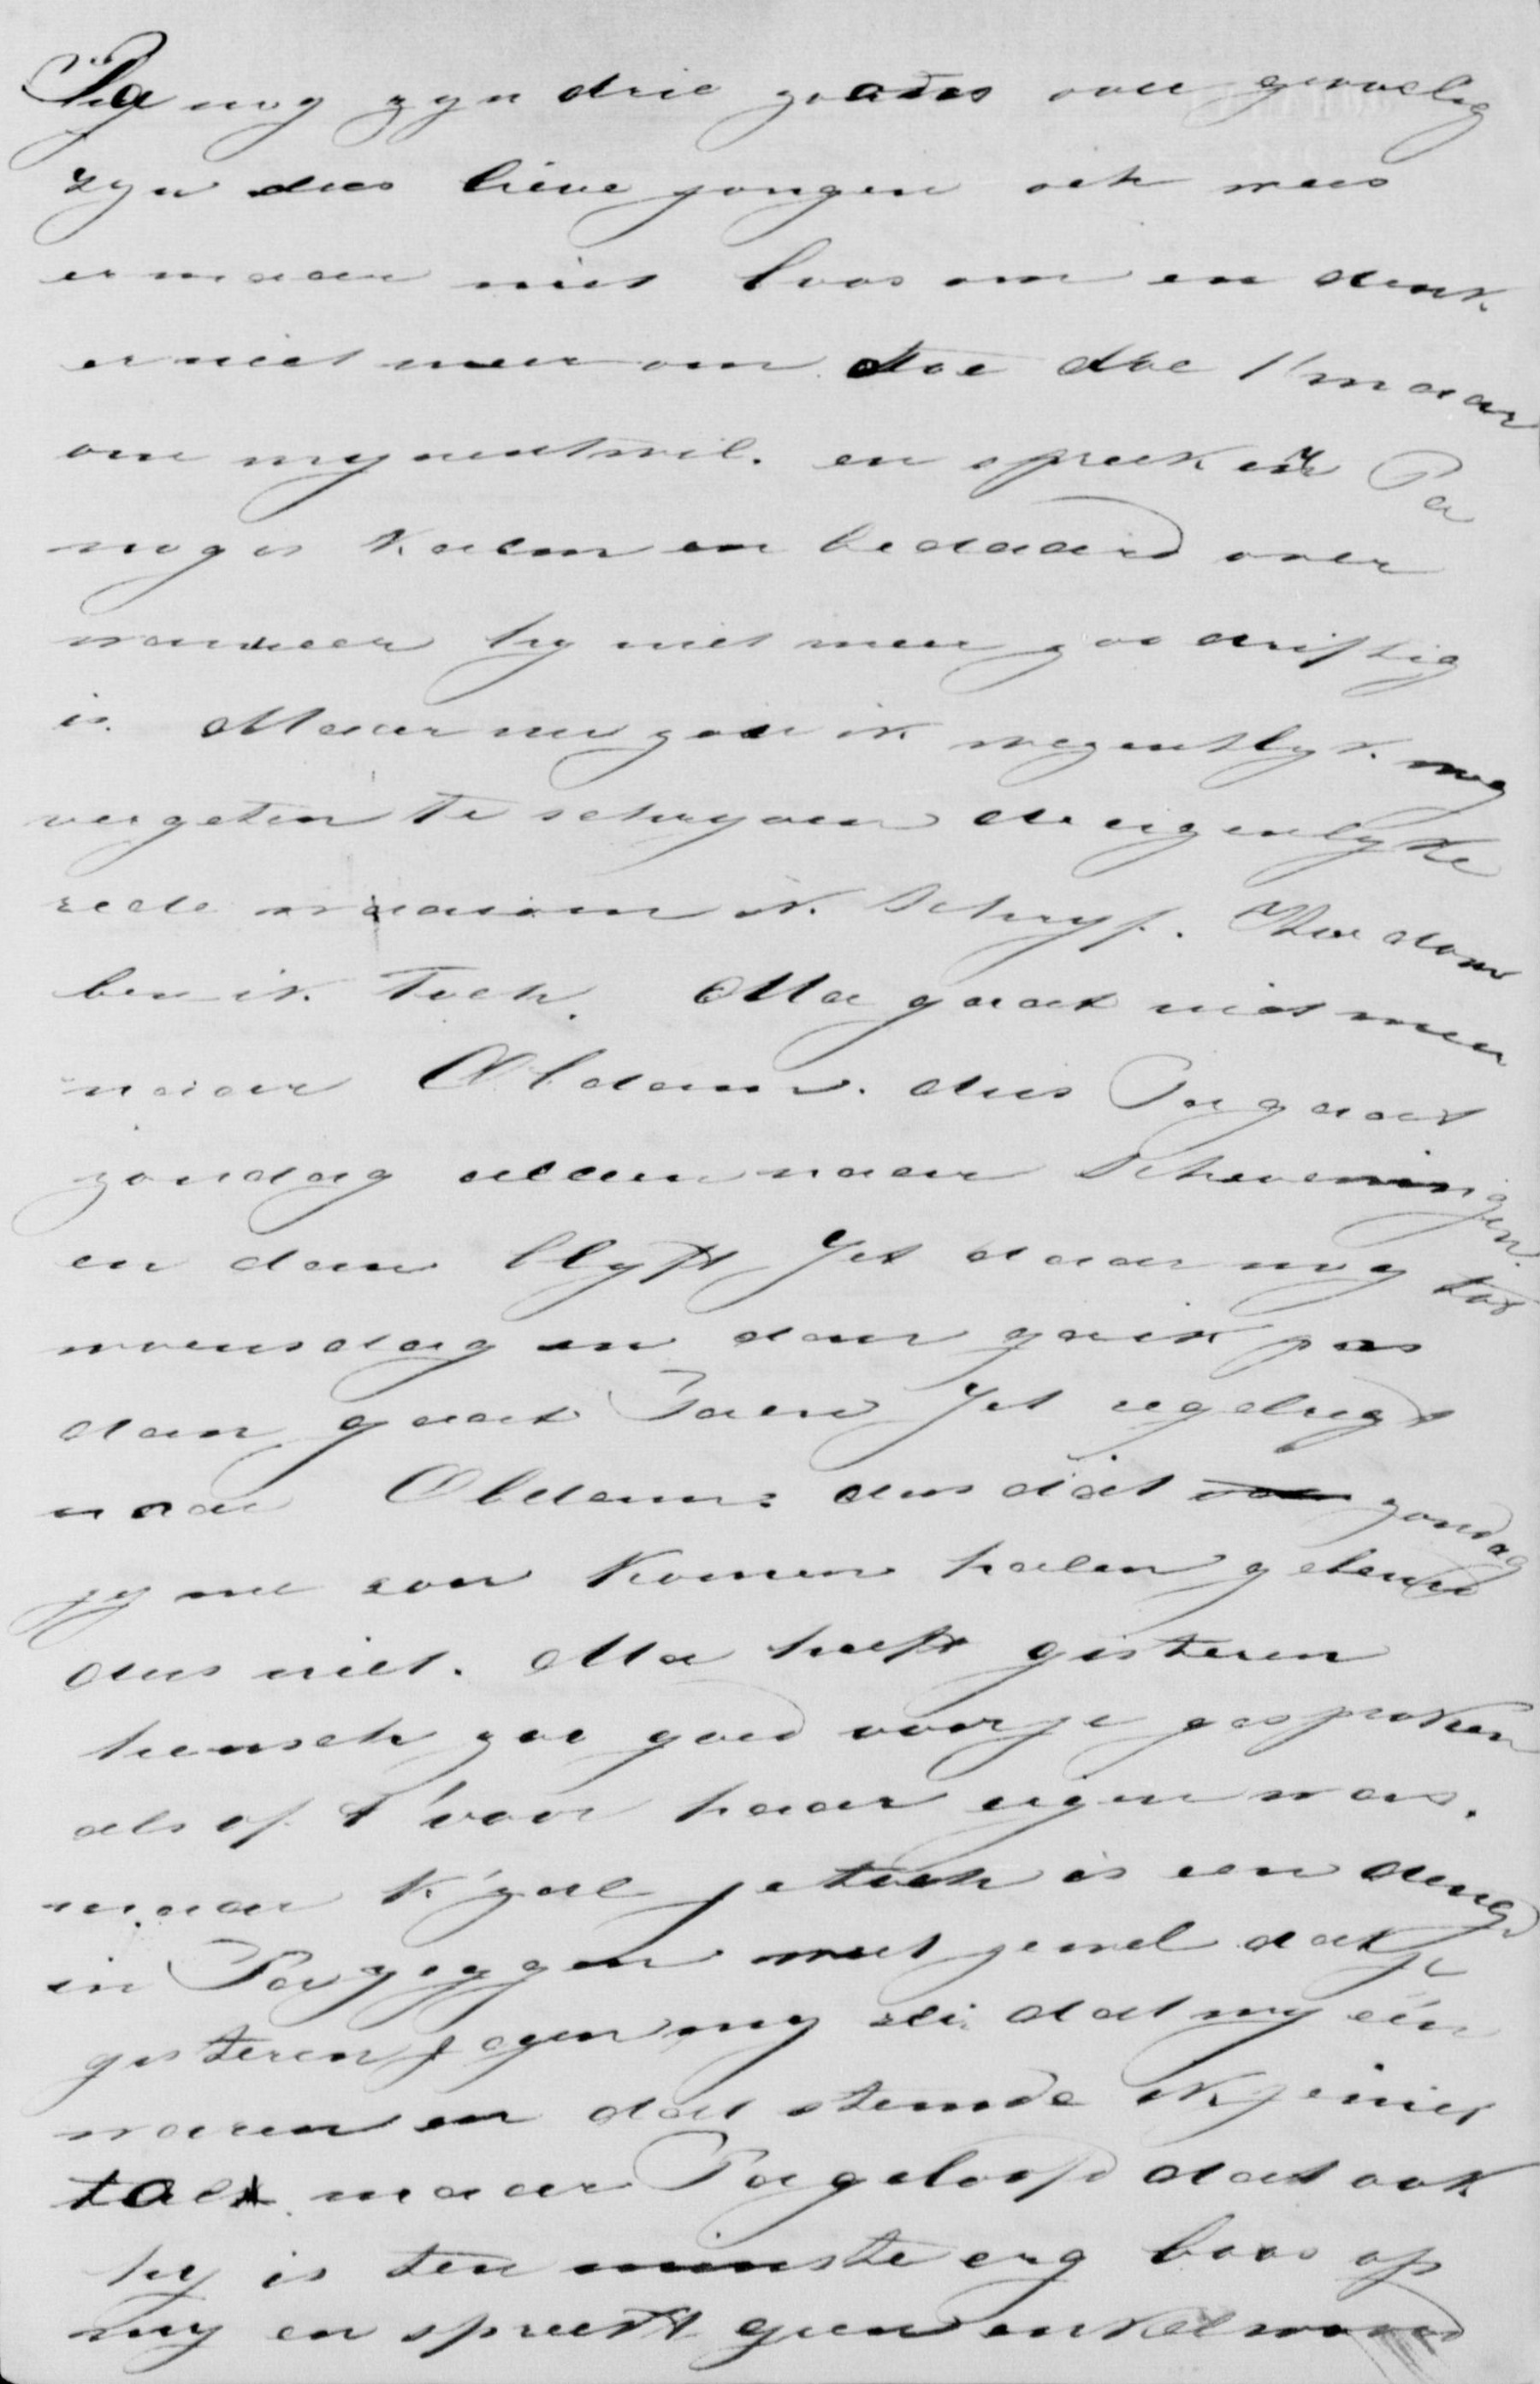 Pa nog zyn drie zoons over gevoelig
zyn dus lieve jongen och wees
er maar niet boos om en denk
er niet meer om. toe doe 't maar
om mynentwil. en spreek er Pa
nog is kalm en bedaard over
wanneer hy niet meer zoo driftig
is. Maar nu zou ik wezentlyk nog
vergeten te schryven de eigenlyke
rede waarom ik schryf. Hoe dom
ben ik toch. Ma gaat niet meer
naar Obdam. dus Pa gaat
zondag alleen naar Scheveningen.
en dan blyft Jet daar nog tot
woensdag en dan ga ik pas
dan gaat Pa en Jet
naar Obdam: dus dat zondag
jy me zou komen halen gebeurd
dus niet. Ma heeft gisteren
heusch zoo goed voor je gesproken
als of 't voor haar eigen was.
maar k'zal je toch is een ding
in Pa zeggen weet je wel dat je
gisteren tegen my zei dat wy één
waren en dat stemde ik je niet
toe maar Pa geloofd dat ook
hy is ten minste erg boos op
my en spreekt geen enkel woord